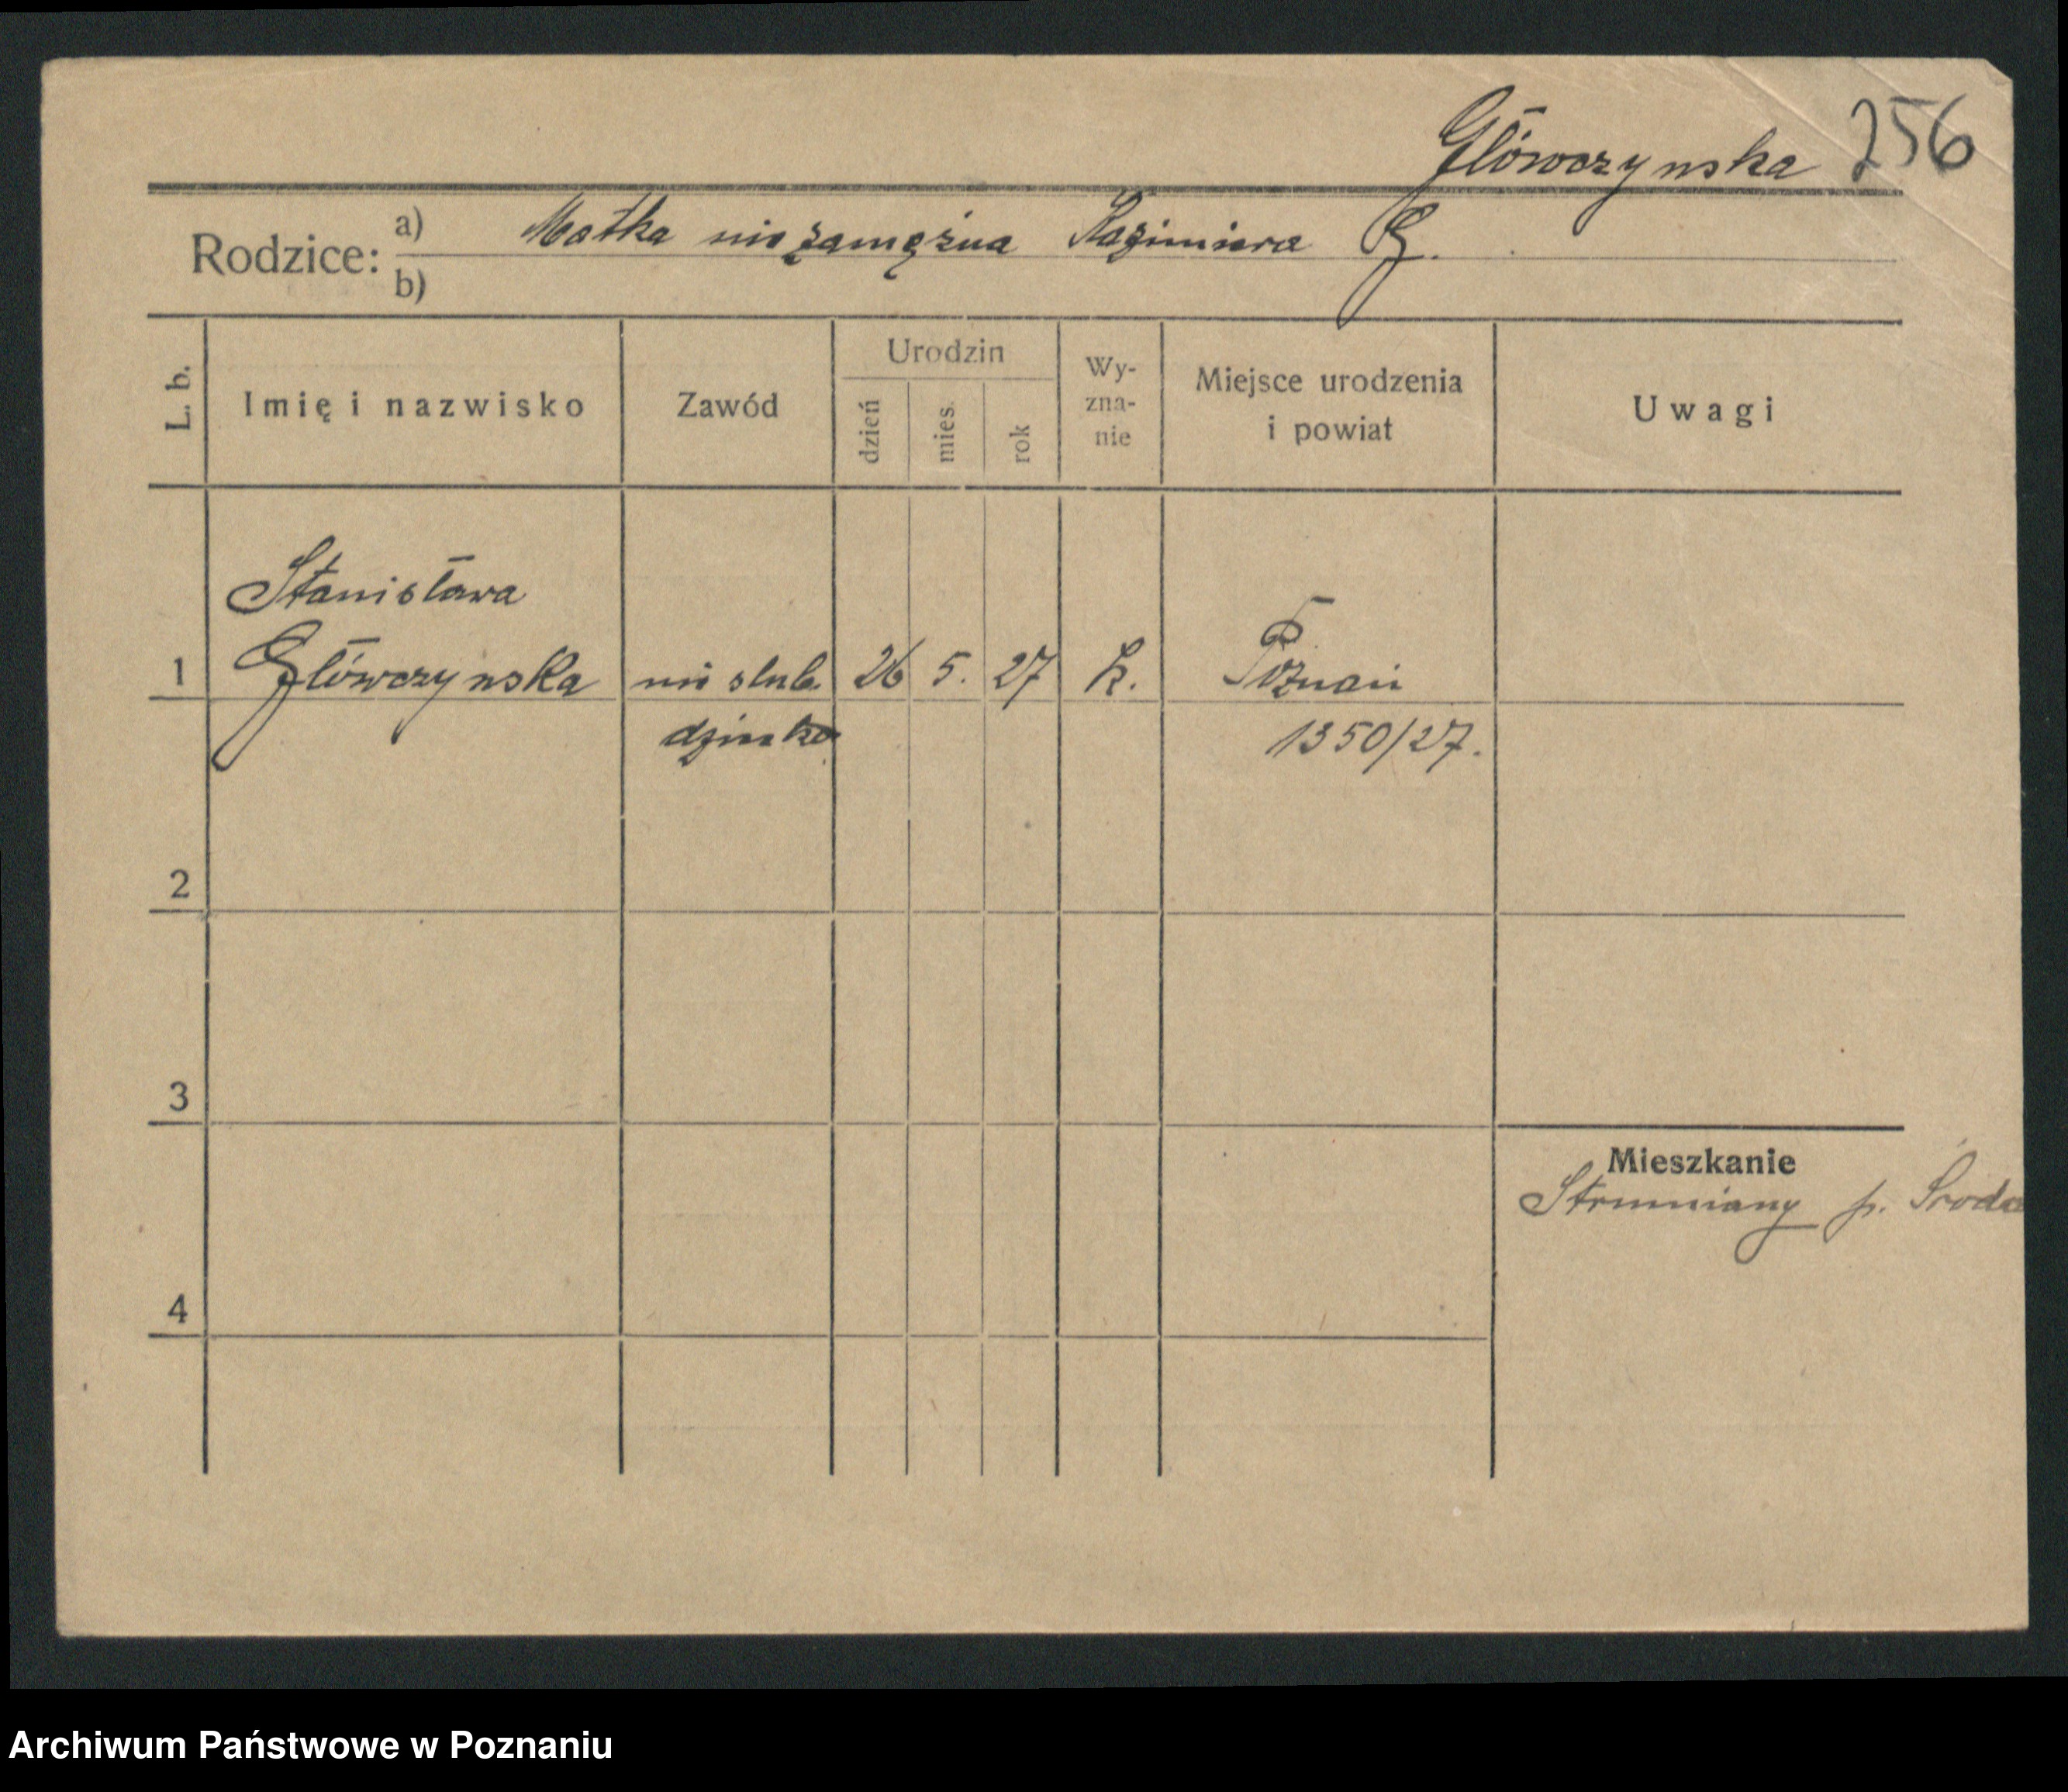 Główczynska 256
Rodzice: a) Matka niezamężna Kazimiera G.
b)
L. b. Imię i nazwisko Zawód Urodzin dzień mies. rok Wy-zna-nie Miejsce urodzenia i powiat Uwagi
Stanisława
1 Główczynska nieślub. 26 5. 27 k. Poznań
dziecko 1350/27.
2
3
Mieszkanie
Strumiany p. Środa
4
Archiwum Państwowe w Poznaniu